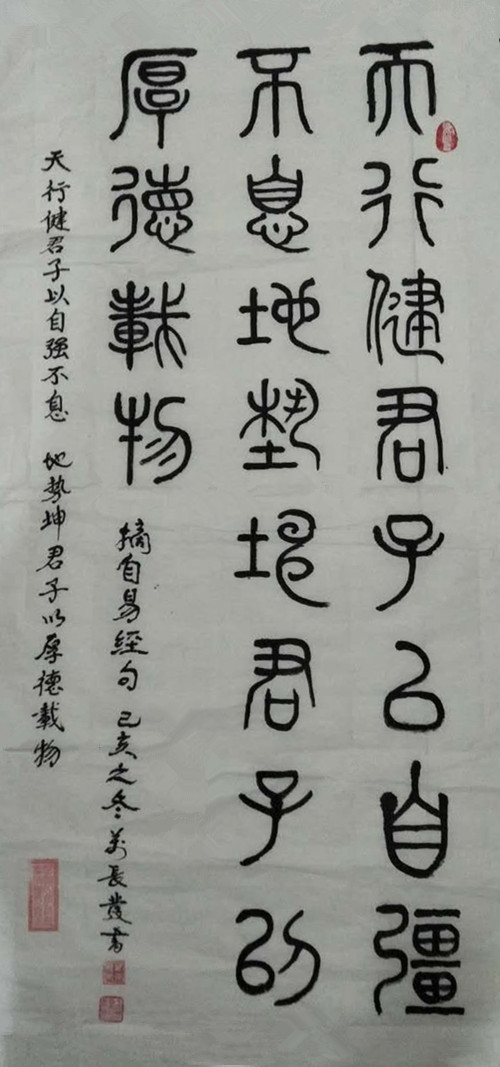 天行健君子以自彊
不息地埶坤君子以
厚德載物
摘自易經句 己亥之冬萬長發書
天行健君子以自強不息 地勢坤君子以厚德載物